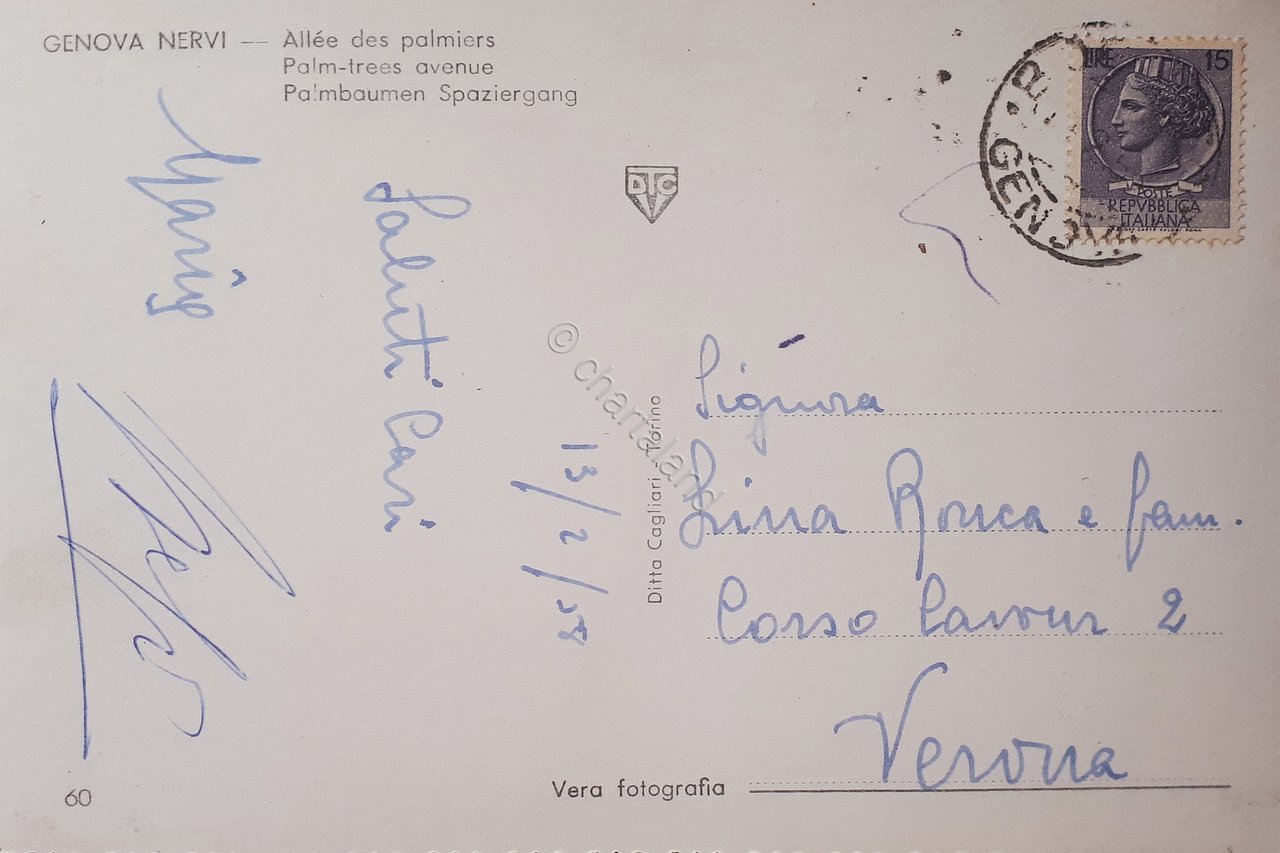 GENOVA NERVI — Allée des palmiers
Palm-trees avenue
Palmbaumen Spaziergang
DTC
LIRE 15
POSTE
REPVBBLICA
ITALIANA
GENOVA
13/2/58
Saluti Cari
Signora
Lina Ronca e fam.
Corso Cavour 2
Verona
Ditta Cagliari - Torino
© chartaland
Vera fotografia
60